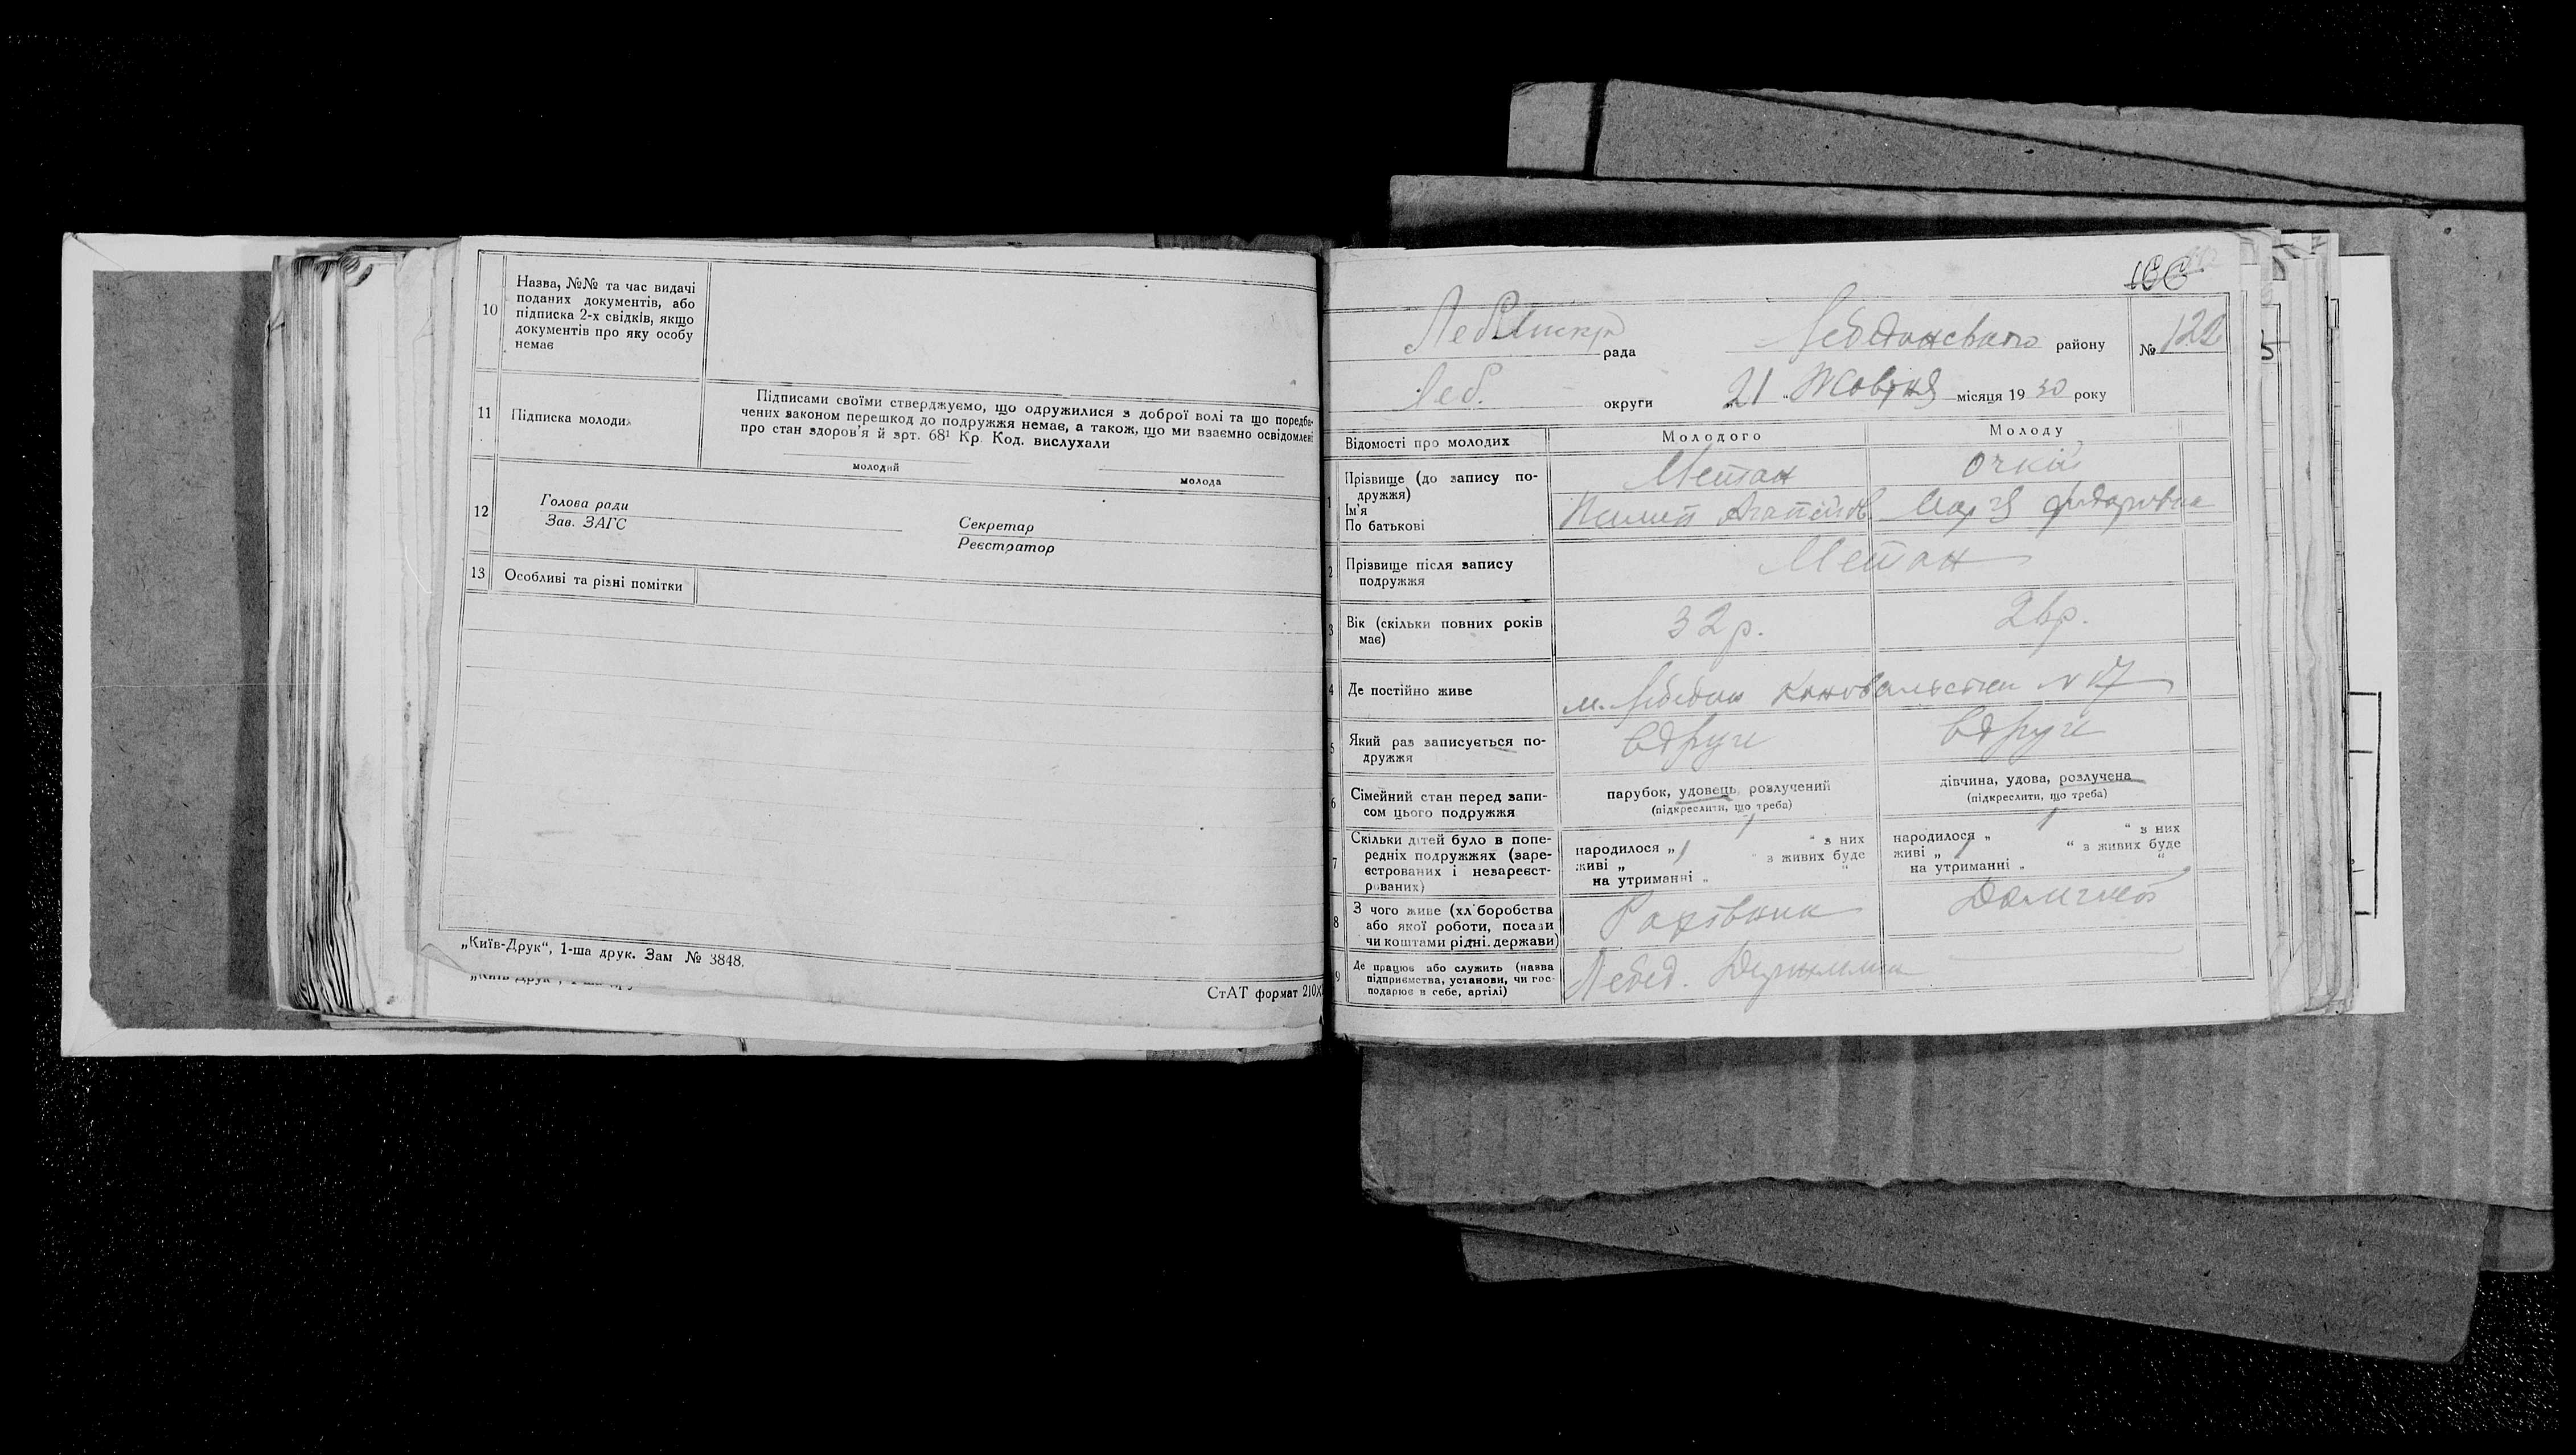 10
Назва, №№ та час видачі
поданих документів, або
підписка 2-х свідків, якщо
документів про яку особу
немає
11
Підписка молодих
Підписами своїми стверджуємо, що одружилися з доброї волі та що поредба-
чених законом перешкод до подружжя немає, а також, що ми взаємно освідомлені
про стан здоров'я й зрт. 68¹ Кр. Код. вислухали
молодий
молода
12
Голова ради
Зав. ЗАГС
Секретар
Реєстратор
13
Особливі та різні помітки
„Київ-Друк“, 1-ша друк. Зам № 3848.
СтАТ формат 210X
166
рада
району
№ 122
Леб.
округи
21 Жовтня місяця 1930 року
Відомості про молодих
Молодого
Молоду
1
Прізвище (до запису по-
дружжя)
Ім'я
По батькові
Метан
Очкій
Марія
2
Прізвище після запису
подружжя
Метан
3
Вік (скільки повних років
має)
32 р.
26р.
4
Де постійно живе
м. Лебедин
№ 17
5
Який раз записується по-
дружжя
вдруге
вдруге
6
Сімейний стан перед запи-
сом цього подружжя
парубок, удовець, розлучений
(підкреслити, що треба)
дівчина, удова, розлучена
(підкреслити, що треба)
7
Скільки дітей було в попе-
редніх подружжях (заре-
єстрованих і незареєст-
рованих)
народилося „ 1 “ з них
живі „ 1 “ з живих буде
на утриманні „ “
народилося „ 1 “ з них
живі „ 1 “ з живих буде
на утриманні „ “
8
З чого живе (хліборобства
або якої роботи, посади
чи коштами рідні. держави)
Рахівник
9
Де працює або служить (назва
підприємства, установи, чи гос-
подарює в себе, артілі)
Лебед.